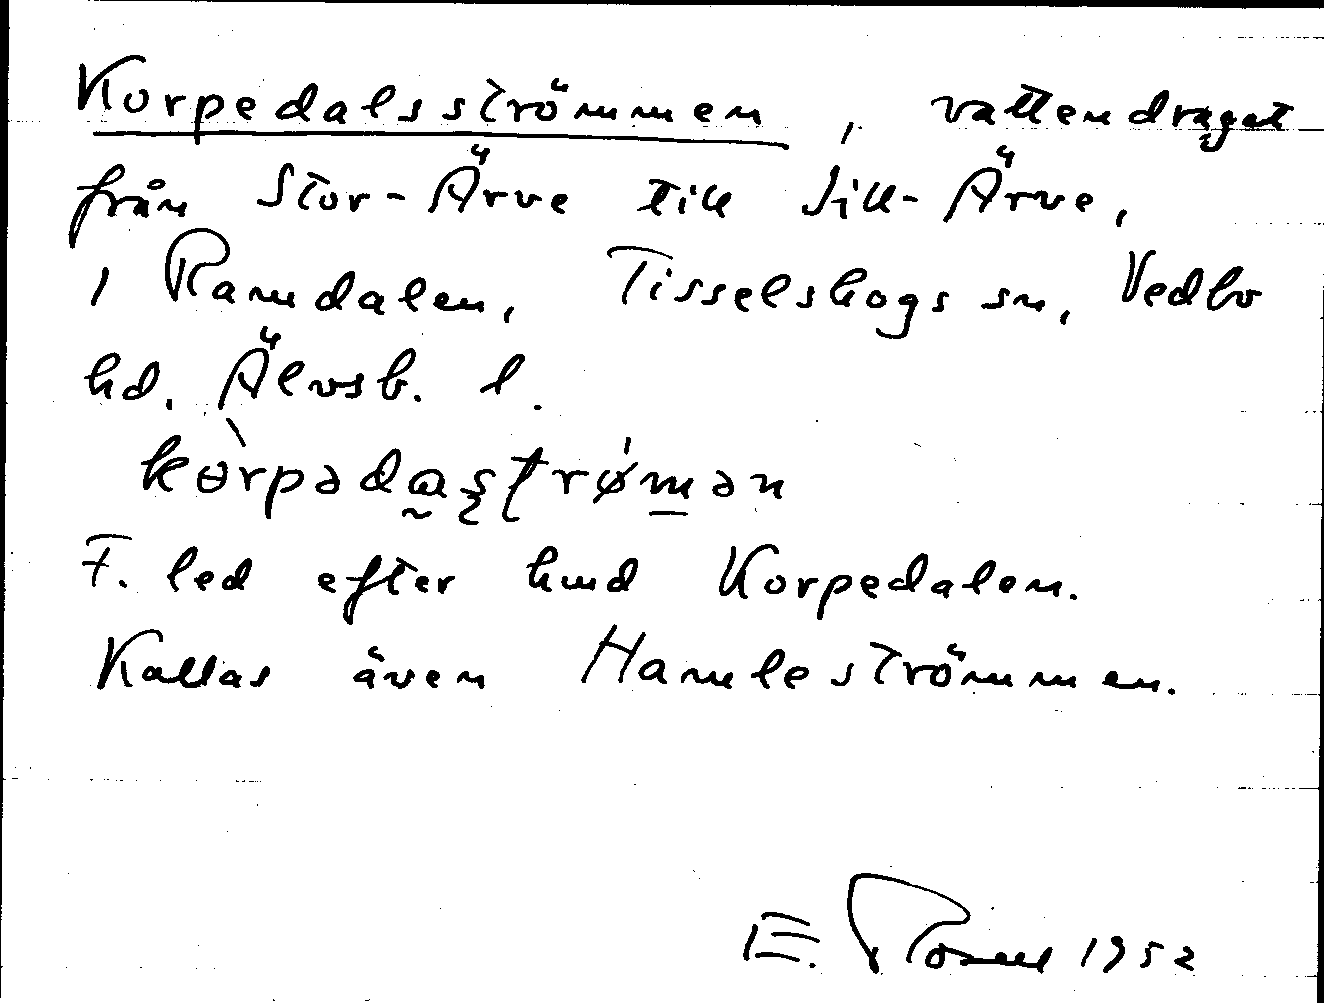 Korpedalsströmmen, vattendraget
från Stor-Ärve till Lill-Ärve,
i Ramdalen, Tisselskogs sn, Vedbo
hd. Älvsb. l.
F. led efter hmd Korpedalen.
Kallas även Hamleströmmen.
E. 1952